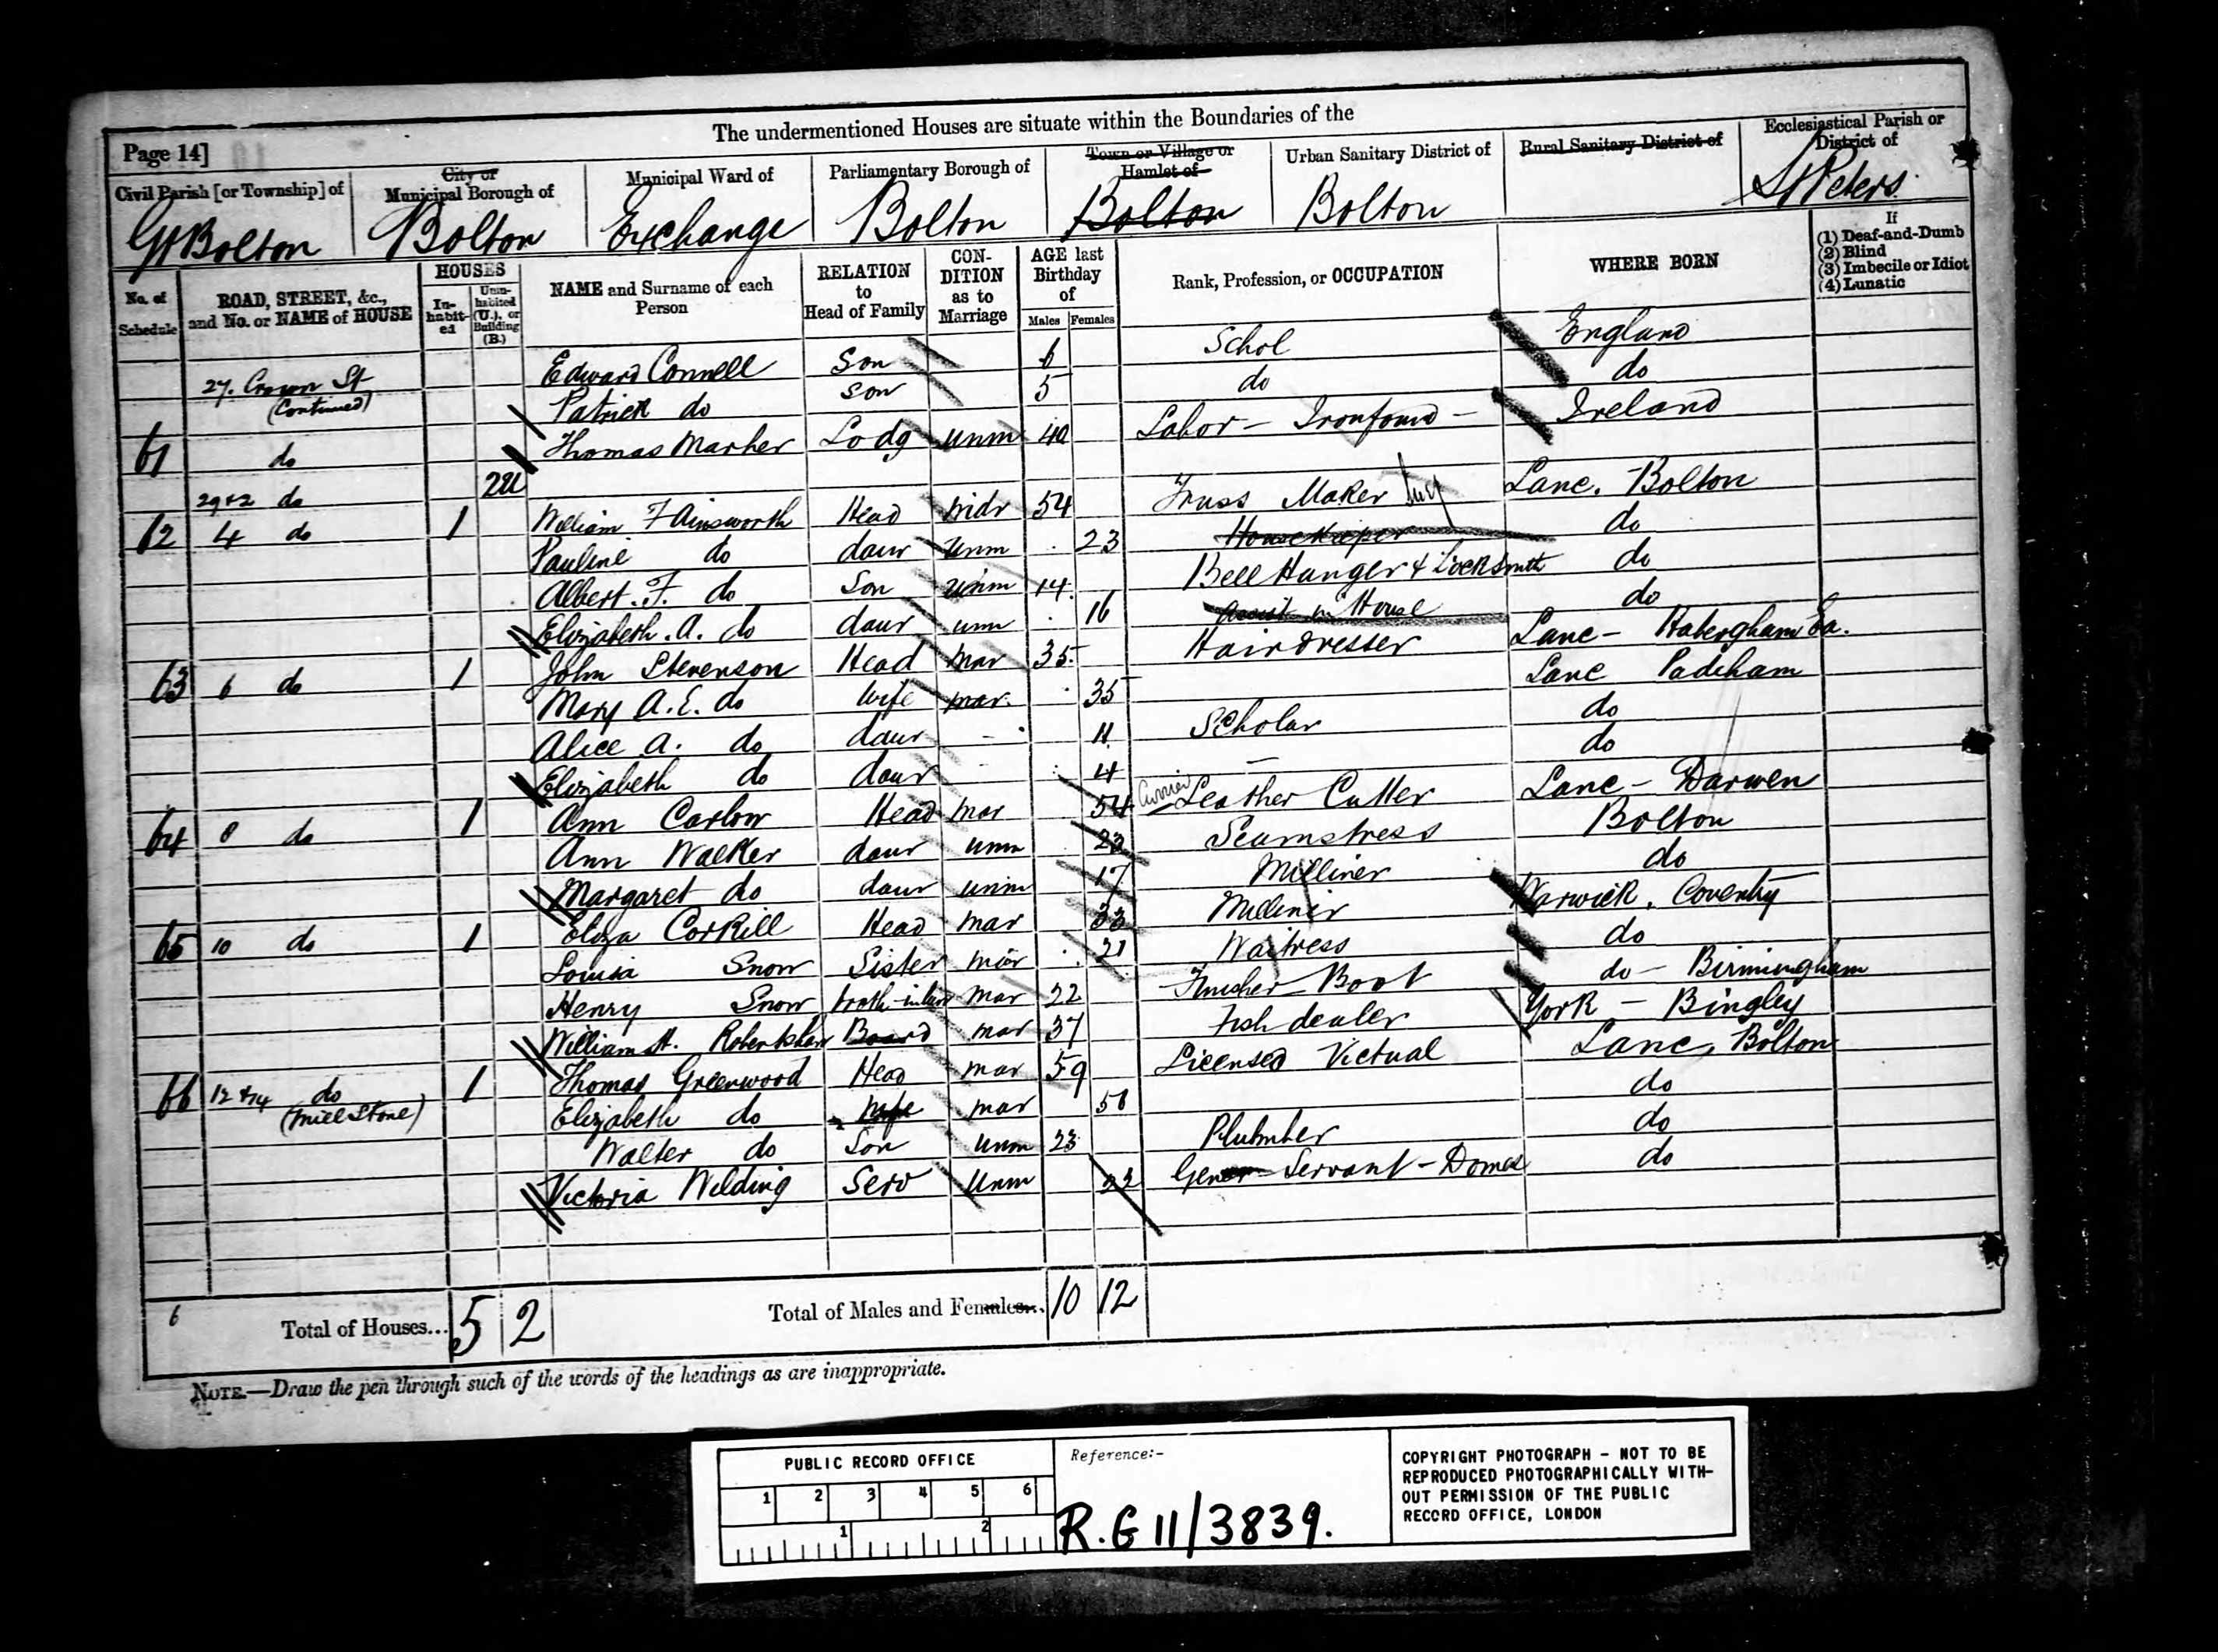 The undermentioned Houses are situate within the Boundaries of the
Page 14]
Civil Parish [or Township] of
City or Municipal Borough of
Municipal Ward of
Parliamentary Borough of
Town or Village or Hamlet of
Urban Sanitary District of
Rural Sanitary District of
Ecclesiastical Parish or District of
Gt Bolton Bolton Exchange Bolton Bolton Bolton St Peters
No. of Schedule
ROAD, STREET, &c., and No. or NAME of HOUSE
HOUSES
In-habit-ed
Unin-habited (U.), or Building (B.)
NAME and Surname of each Person
RELATION to Head of Family
CON-DITION as to Marriage
AGE last Birthday of
Males Females
Rank, Profession, or OCCUPATION
WHERE BORN
If
(1) Deaf-and-Dumb
(2) Blind
(3) Imbecile or Idiot
(4) Lunatic
27. Crown St (Continued) Edward Connell Son 6 Schol England
Patrick do son 5 do do
61 do Thomas Marher Lodg unm 40 Labor - Ironfound - Ireland
29 & 2 do 2U
62 4 do 1 William F Ainsworth Head widr 54 Truss Maker Lanc. Bolton
Pauline do daur unm 23 Housekeeper do
Albert. F. do Son unm 14 Bell Hanger & Locksmith do
Elizabeth. A. do daur unm 16 Assist in House do
63 6 do 1 John Stevenson Head mar 35 Hairdresser Lanc - Habergham Ea.
Mary A. E. do wife mar. 35 Lanc Padiham
Alice A. do daur - 11 Scholar do
Elizabeth do daur 4 — do
64 8 do 1 Ann Carlow Head mar 54 Currier Leather Cutter Lanc - Darwen
Ann Walker daur unm 23 Seamstress Bolton
Margaret do daur unm 17 Milliner do
65 10 do 1 Eliza Corkill Head mar 33 Milliner Warwick. Coventry
Louisa Snow Sister mar 21 Waitress do
Henry Snow broth-inlaw mar 22 Finisher Boot do - Birmingham
William H. Robertshaw Board mar 37 Fish dealer York - Bingley
66 12 & 14 do (Mill Stone) 1 Thomas Greenwood Head mar 59 Licensed Victual Lanc, Bolton
Elizabeth do Wife mar 56 do
Walter do Son unm 23 Plumber do
Victoria Welding Serv Unm 22 Gener Servant - Domes do
6
Total of Houses... 5 2 Total of Males and Females... 10 12
NOTE.—Draw the pen through such of the words of the headings as are inappropriate.
PUBLIC RECORD OFFICE
1 2 3 4 5 6
1 2
Reference:-
R.G 11/3839.
COPYRIGHT PHOTOGRAPH - NOT TO BE
REPRODUCED PHOTOGRAPHICALLY WITH-
OUT PERMISSION OF THE PUBLIC
RECORD OFFICE, LONDON